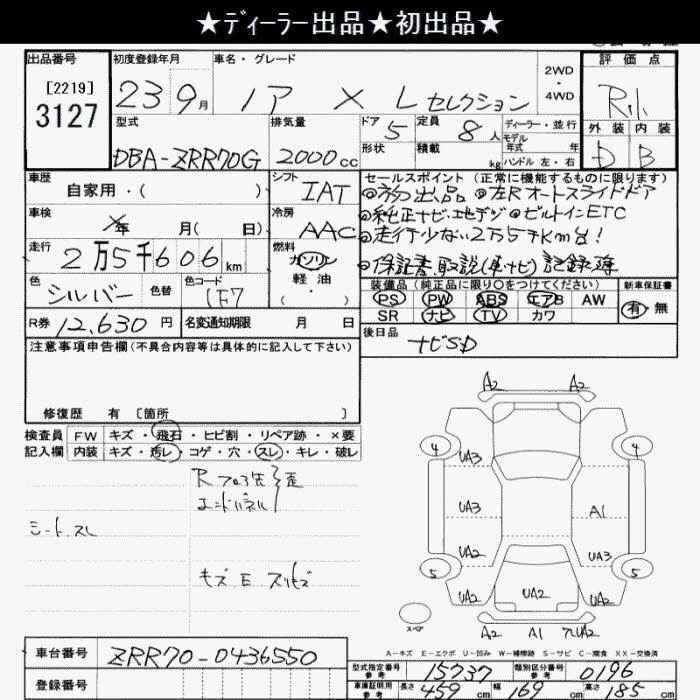 ★ディーラー出品★初出品★
出品番号 初度登録年月 車名・グレード 2WD・4WD 評価点
[2219]
3127
23 9月 ノア X Lセレクション
外装 内装
D B
型式 排気量 ドア 定員 ディーラー・並行
DBA-ZRR70G 2000cc 5 8人
モデル年式 年式
形状 積載 kg ハンドル 左・右
車歴 シフト セールスポイント (正常に機能するものに限ります)
自家用・( ) IAT
◎初出品 ◎左Rオートスライドドア
車検 冷房 ◎純正ナビ・地デジ ◎ビルトインETC
年 月( 日) AAC ◎走行少ない2万5千km台!
走行 燃料
2万5千606km ガソリン
◎保証書、取説(車・ナビ)記録簿
色 色替 色コード 軽油
シルバー 1F7
装備品 (純正品に限り○をつけてください) 新車保証書
PS PW ABS エアB AW 有・無
SR ナビ TV カワ
R券 12,630円 名変通知期限 月 日
後日品
ナビSD
注意事項申告欄 (不具合内容等は具体的に記入して下さい)
修復歴 有 〔箇所 〕
検査員 FW キズ・飛石・ヒビ割・リペア跡・×要
記入欄 内装 キズ・汚レ・コゲ・穴・スレ・キレ・破レ
シートスレ
キズ、E
A2 A2
4 4
UA3
UA3 A1
UA2 UA3
5 5
UA2 UA2 UA2
スペア
A2 A1 UA2
A-キズ E-エクボ U-凹み W-補修跡 S-サビ C-腐食 XX-交換済
車台番号 ZRR70-0436550
登録番号
型式指定番号 参考 15737 類別区分番号 参考 0196
車庫証明用 参考 長さ 459cm 幅 169cm 高さ 185cm